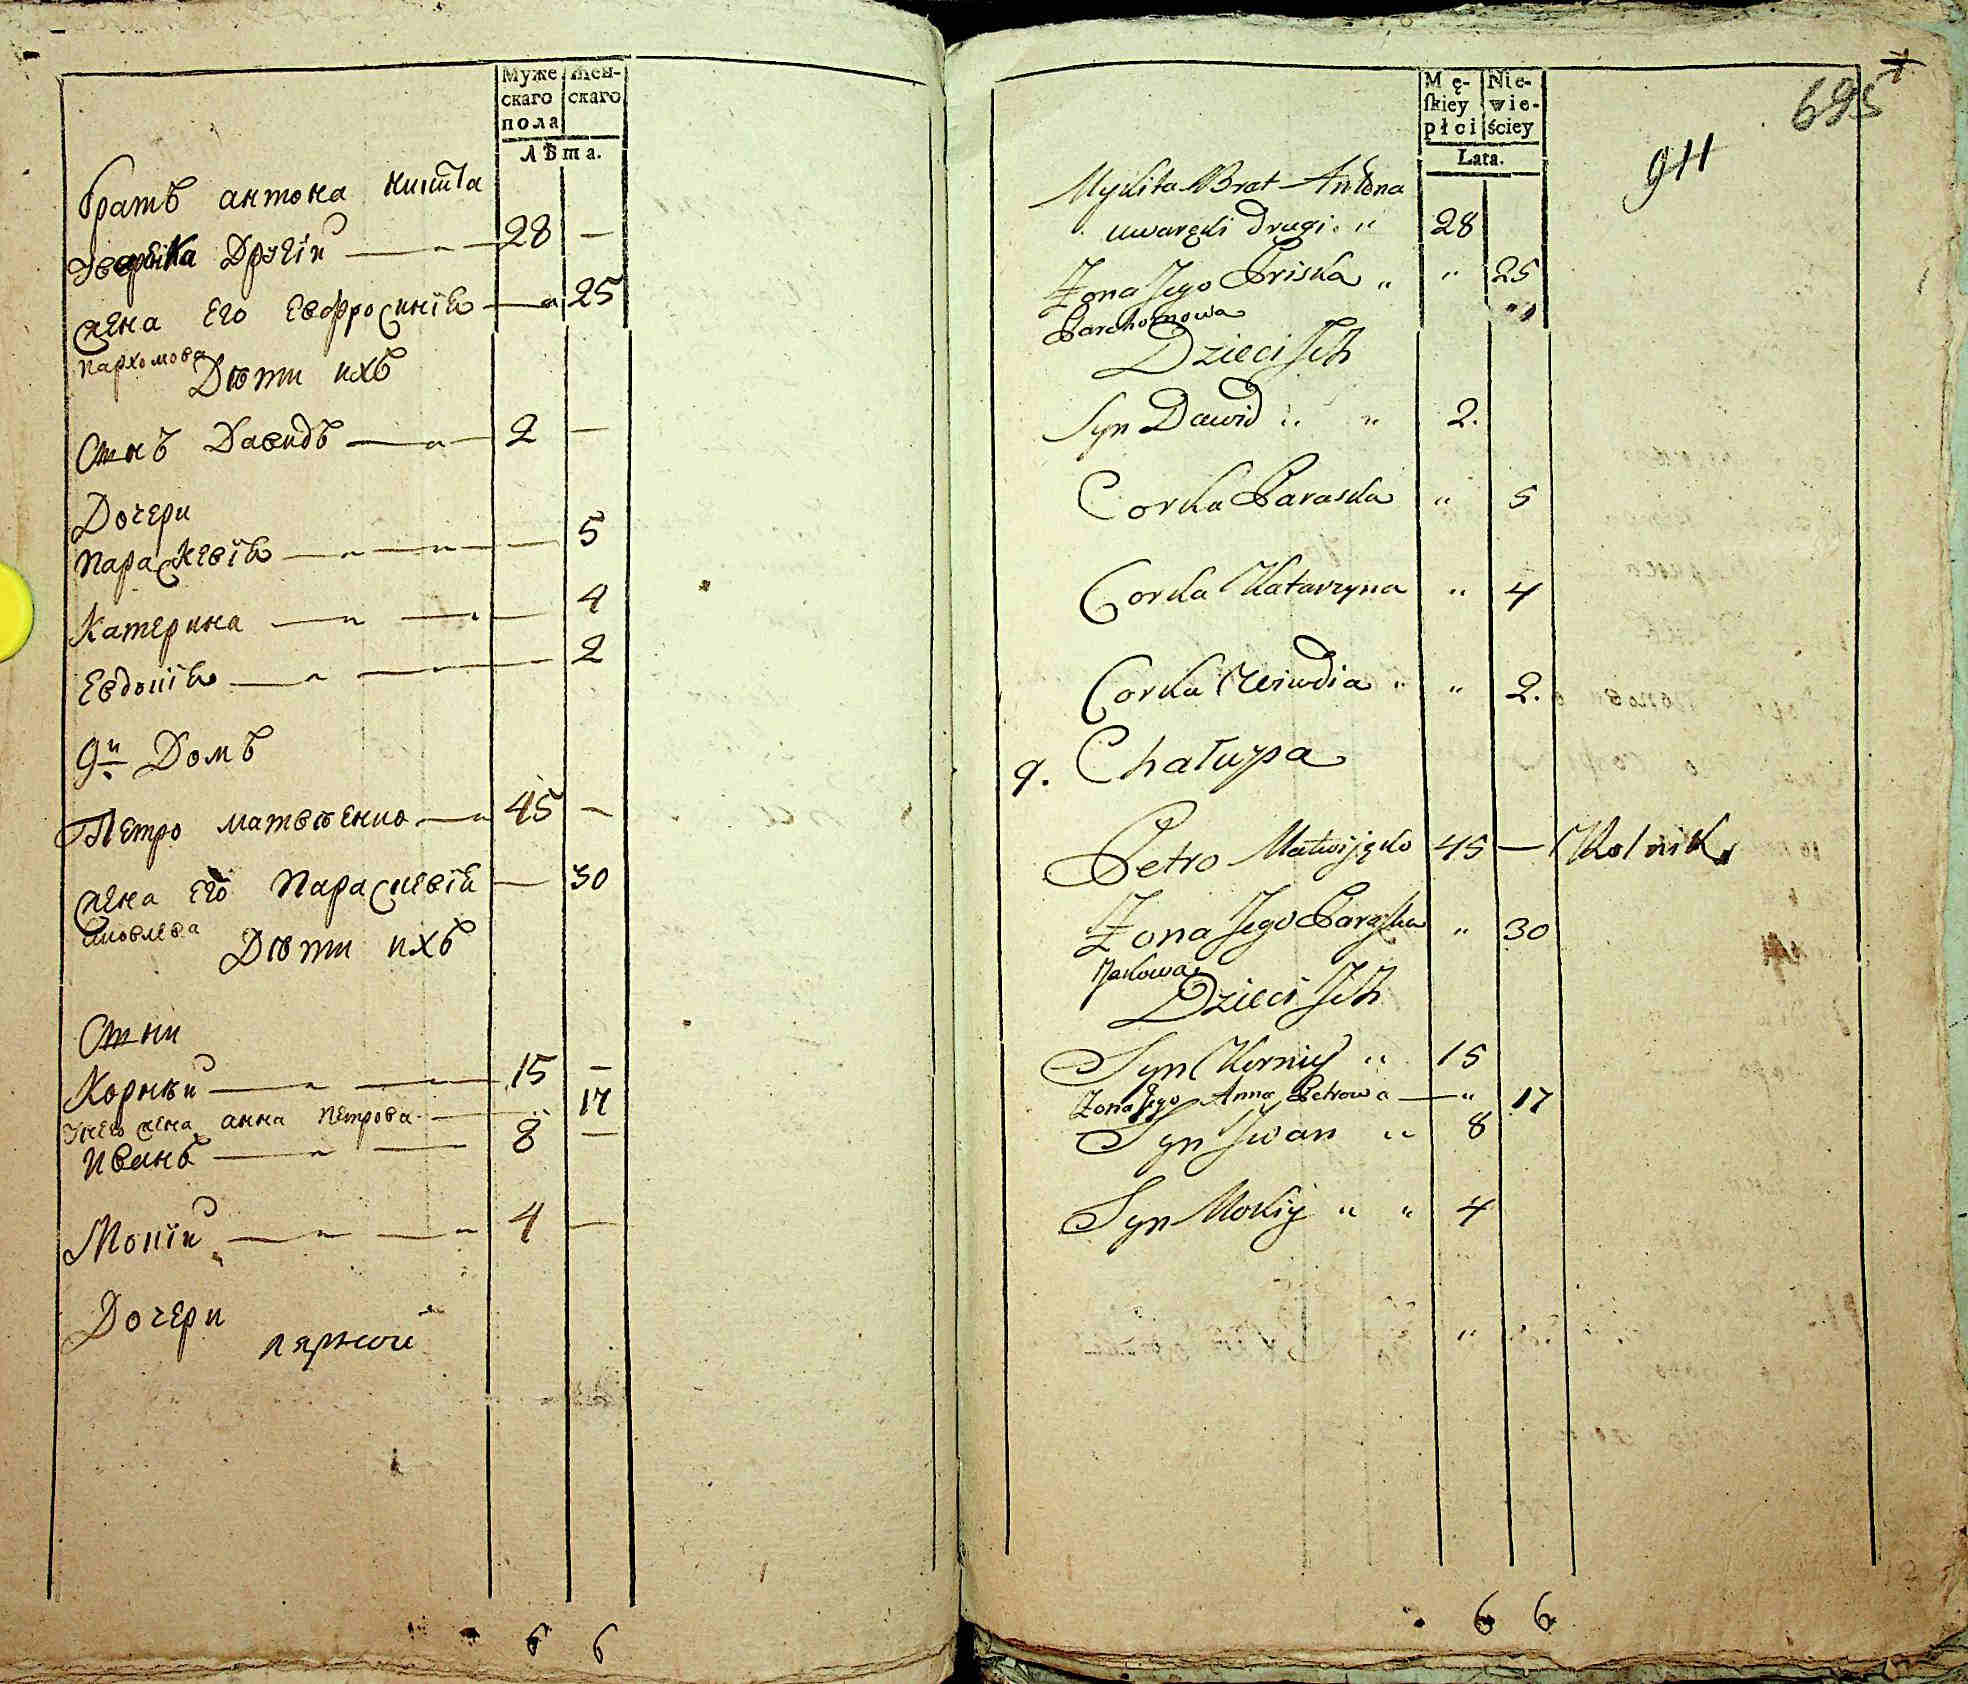 Муже
скаго
пола
жен-
скаго
Лѣта.
братъ антона никита
Дрꙋгiй 28 —
жена его евфросинiѧ 25
пархомова
Дѣти ихъ
Сынъ Давидъ 2 —
Дочери
Параскевiѧ 5
Катерина 4
Евдокiѧ 2
9й Домъ
Петро матвѣенко 45 —
жена его Параскевiѧ — 30
яковлева
Дѣти ихъ
Сыни
Корнѣй 15 —
жена анна петрова 17
иванъ 8 —
Мокiй 4 —
Дочери
Mę-
ſkiey
płci
Nie-
wie-
ściey
Lata.
695
911
Mykita Brat Antona
drugi " 28
Żona Jego Priska " " 25
Parchomowa
Dzieci Ich
Syn Dawid " " 2.
Corka Paraska " 5
Corka Katarzyna " 4
Corka " " 2.
9. Chałupa
Petro Matwijęko 45 — Rolnik
Żona Jego Paraska " 30
Jakowa
Dzieci Ich
Syn Korniy " 15
Żona Jego Anna Petrowa — " 17
Syn Iwan " 8
Syn Mokiy " " 4
"
6 6
6 6